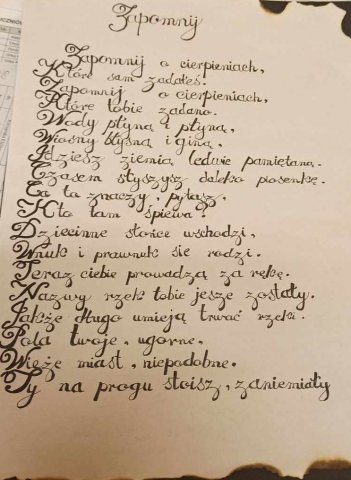 Zapomnij
Zapomnij o cierpieniach,
Które sam zadałeś.
Zapomnij o cierpieniach,
Które tobie zadano.
Wody płyną i płyną,
Wiosny błysną i giną,
Idziesz ziemią ledwie pamiętaną.
Czasem słyszysz daleką piosenkę.
Co to znaczy, pytasz,
Kto tam śpiewa?
Dziecinne słońce wschodzi,
Wnuk i prawnuk się rodzi.
Teraz ciebie prowadzą za rękę.
Nazwy rzek tobie jesze zostały.
Jakże długo umieją trwać rzeki.
Pola twoje, ugorne,
Wieże miast, niepodobne.
Ty na progu stoisz, zaniemiały